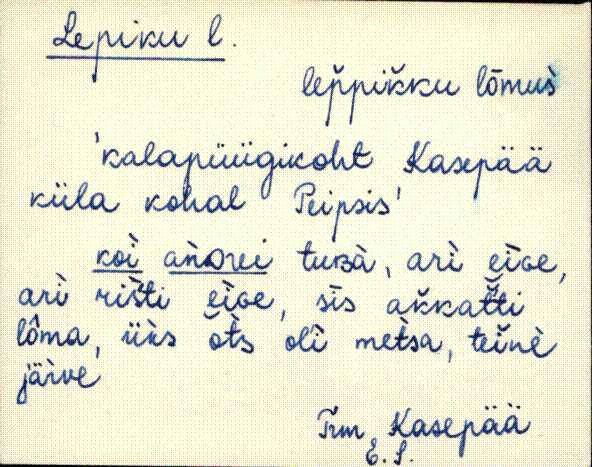 Lepiku l.
lep̆pik̆ku lōmus̀
'kalapüügikoht Kasepää
küla kohal Peipsis'
koì aǹdvei tuʙà, arì eìve,
arì ris̆ti eìve, sīs ak̆kat̆ti
lôma, ük̀s ot̆s olì met̀sa, teĭnè
järve
Trm Kasepää
E. S.